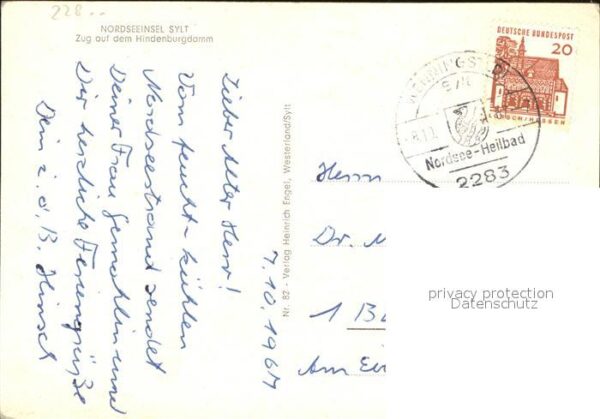 228..
NORDSEEINSEL SYLT
Zug auf dem Hindenburgdamm
7.10.1964
Lieber Alter Herr!
Vom feucht-kühlen
Nordseestrand sendet
Deiner Frau Gemahlin und
Dir herzliche Feriengrüße
Dein z. d. B.
Nr. 82 - Verlag Heinrich Engel, Westerland/Sylt
DEUTSCHE BUNDESPOST
20
LORSCH/HESSEN
WENNINGSTEDT
Nordsee-Heilbad
2283
Herrn
Dr. M
1 B
Am Ei
privacy protection
Datenschutz